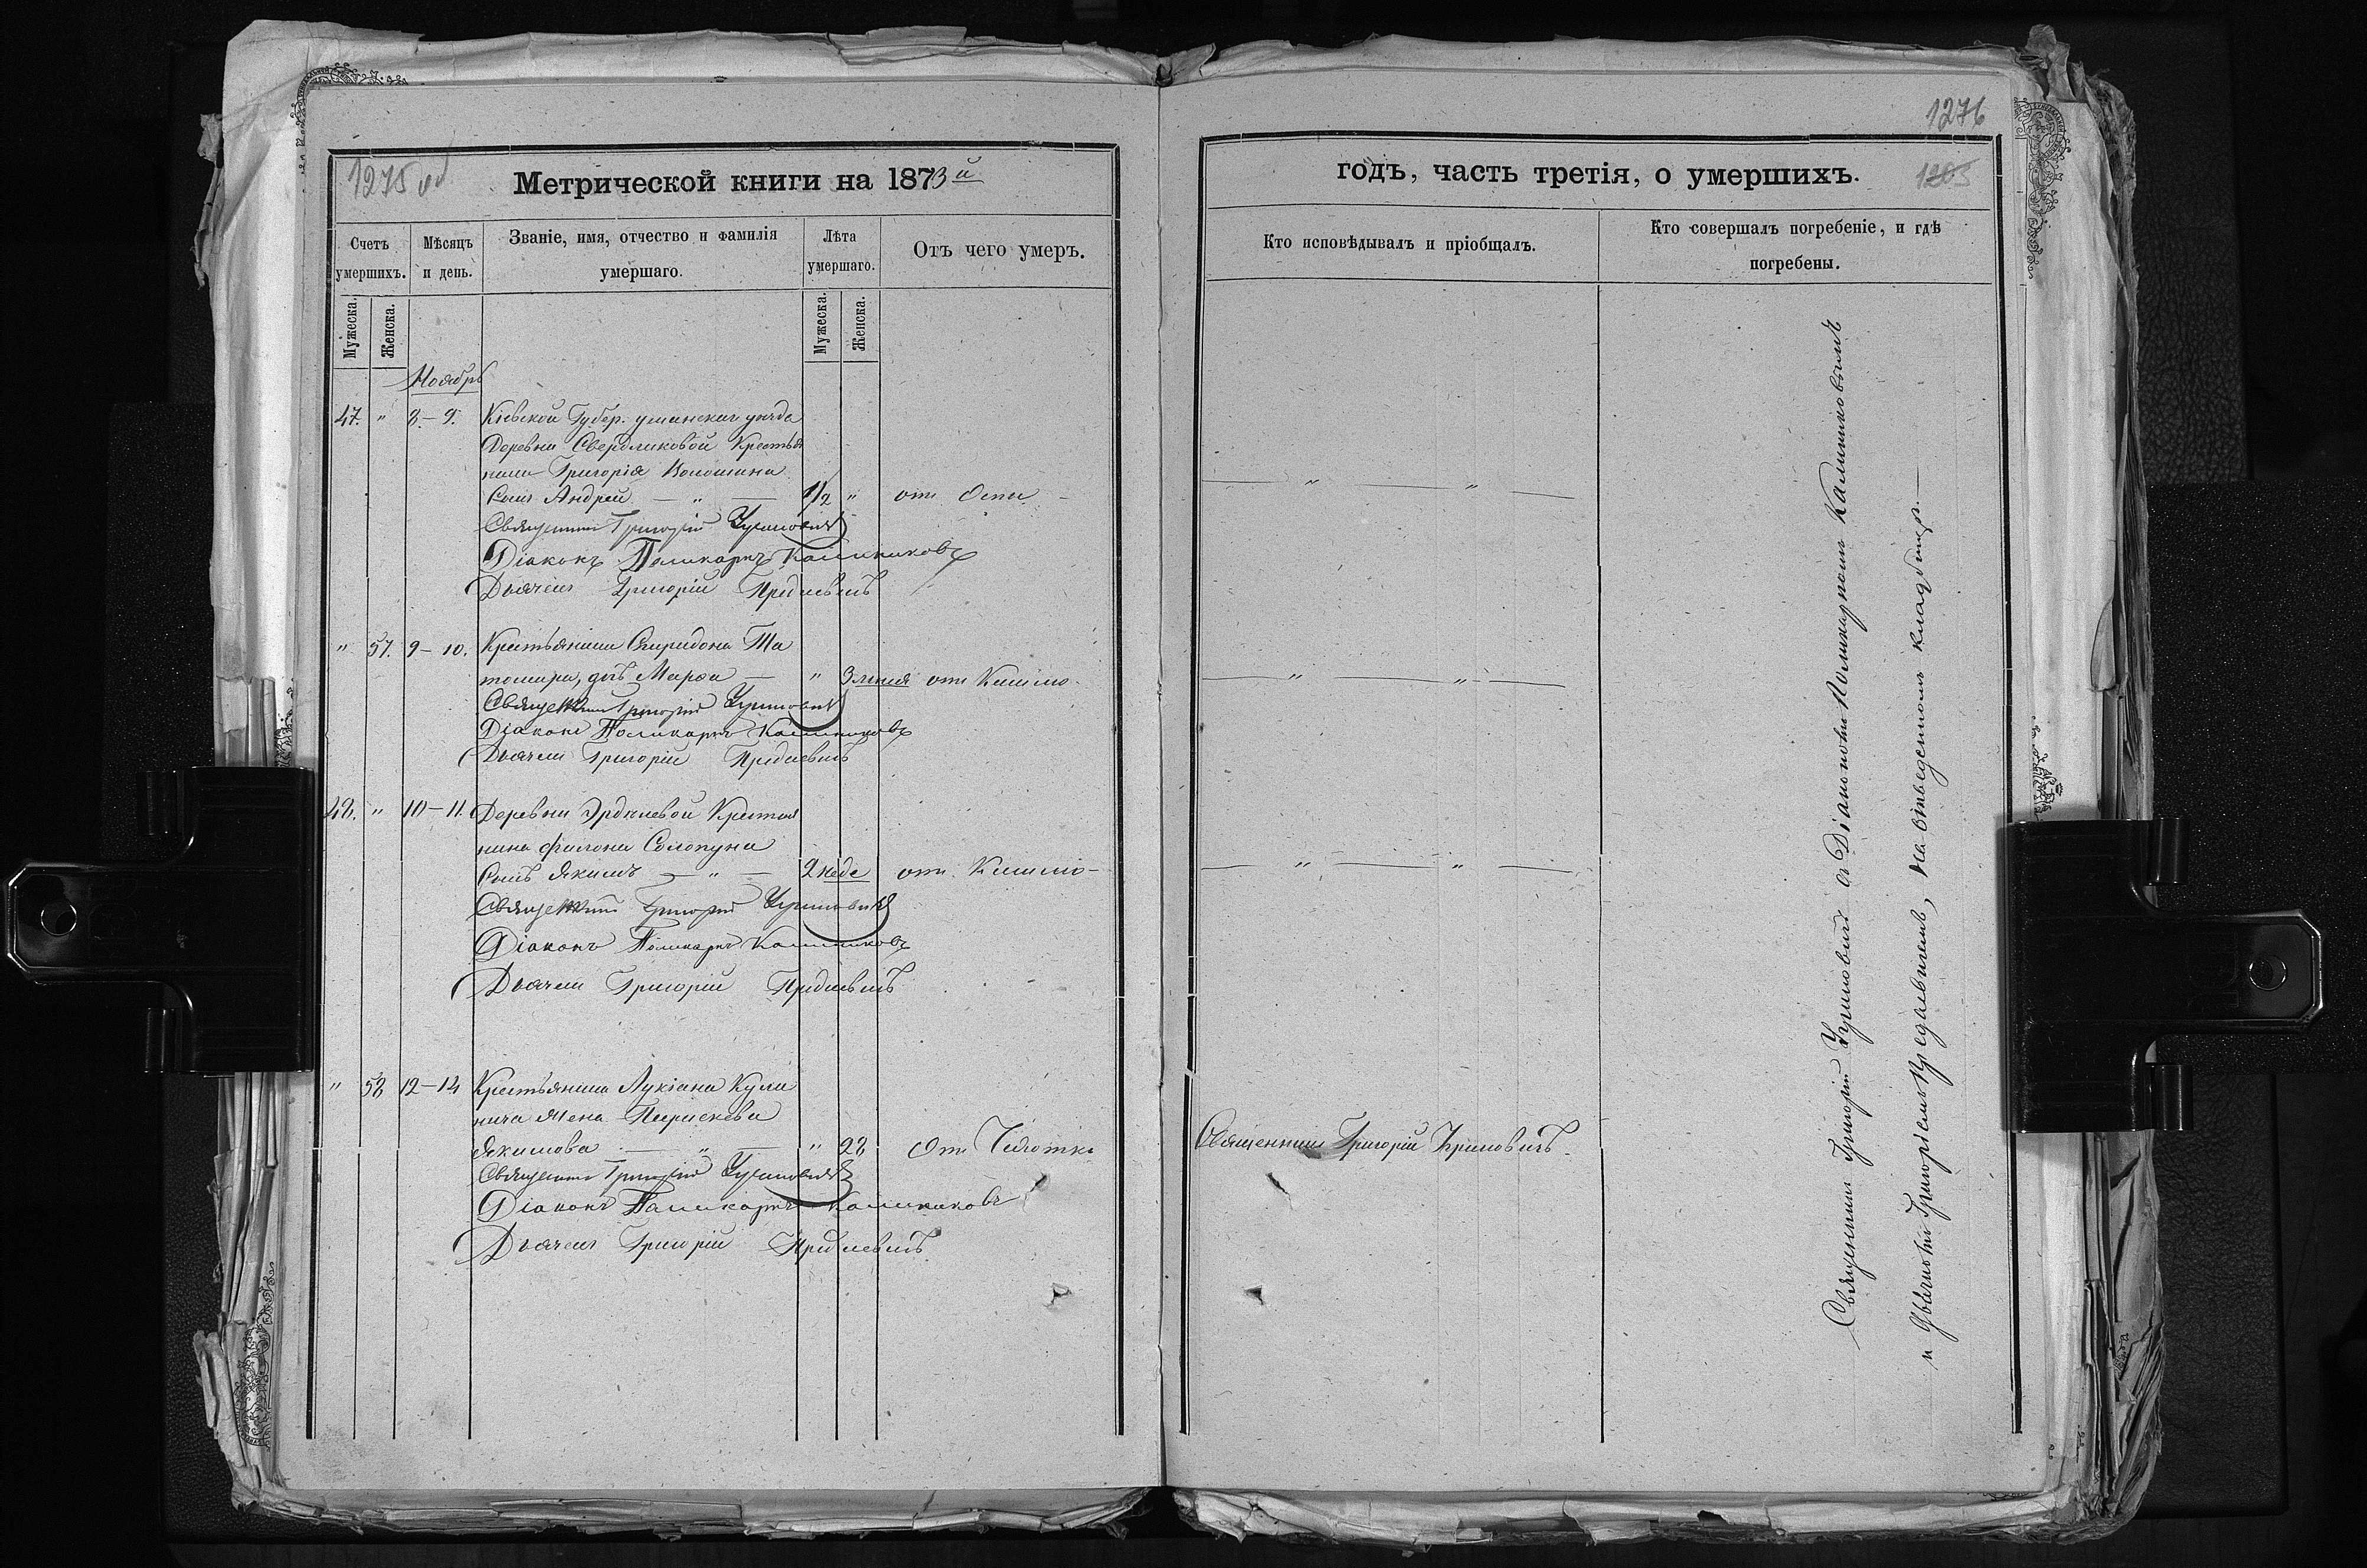 1275 об
Метрической книги на 1873й
Счетъ умершихъ.
Мѣсяцъ и день.
Званіе, имя, отчество и фамилія умершаго.
Лѣта умершаго.
Отъ чего умеръ.
Мужеска.
Женска.
Мужеска.
Женска.
Ноябрь
47. " 8–9. Кіевской Губер. уманскаго уѣзда
Деревни Свердликовой Крестья
нина Григорія Волошина
Сынъ Андрей — " — 1/2 " отъ Оспы –
Священникъ Григорій
Діаконъ Поликарпъ Калинниковъ
Дьячекъ Григорій
" 57. 9–10. Крестьянина Спиридона Та
томира, дочь Марфа — " 3 отъ Кашлю.
Священникъ Григорій
Діаконъ Поликарпъ Калинниковъ
Дьячекъ Григорій
48. " 10–11. Деревни Крестья
нина Филона Солопуна
Сынъ Якимъ — " — 2 неде отъ Кашлю –
Священникъ Григорій
Діаконъ Поликарпъ Калинниковъ
Дьячекъ Григорій
" 58 12–14 Крестьянина Лукіана Кули
нича жена Параскева
Якимова — " — " 28 Отъ Чахотки
Священникъ Григорій
Діаконъ Поликарпъ Калинниковъ
Дьячекъ Григорій
1276
годъ, часть третія, о умершихъ.
1203
Кто исповѣдывалъ и пріобщалъ.
Кто совершалъ погребеніе, и гдѣ погребены.
— " — " —
— " — " —
— " — " —
Священникъ Григорій
Священникъ Григорій съ Діакономъ Поликарпомъ Калинниковымъ
и дьячкомъ Григоріемъ на отведенномъ кладбищѣ. —